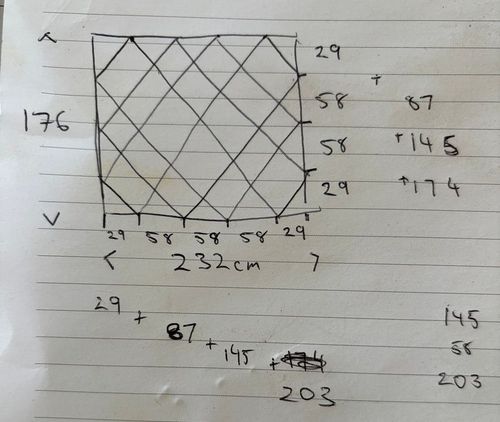 29
58 + 87
176
58 +145
29 +174
29 58 58 58 29
< 232cm >
29 + 87 + 145 +
203
145
58
203